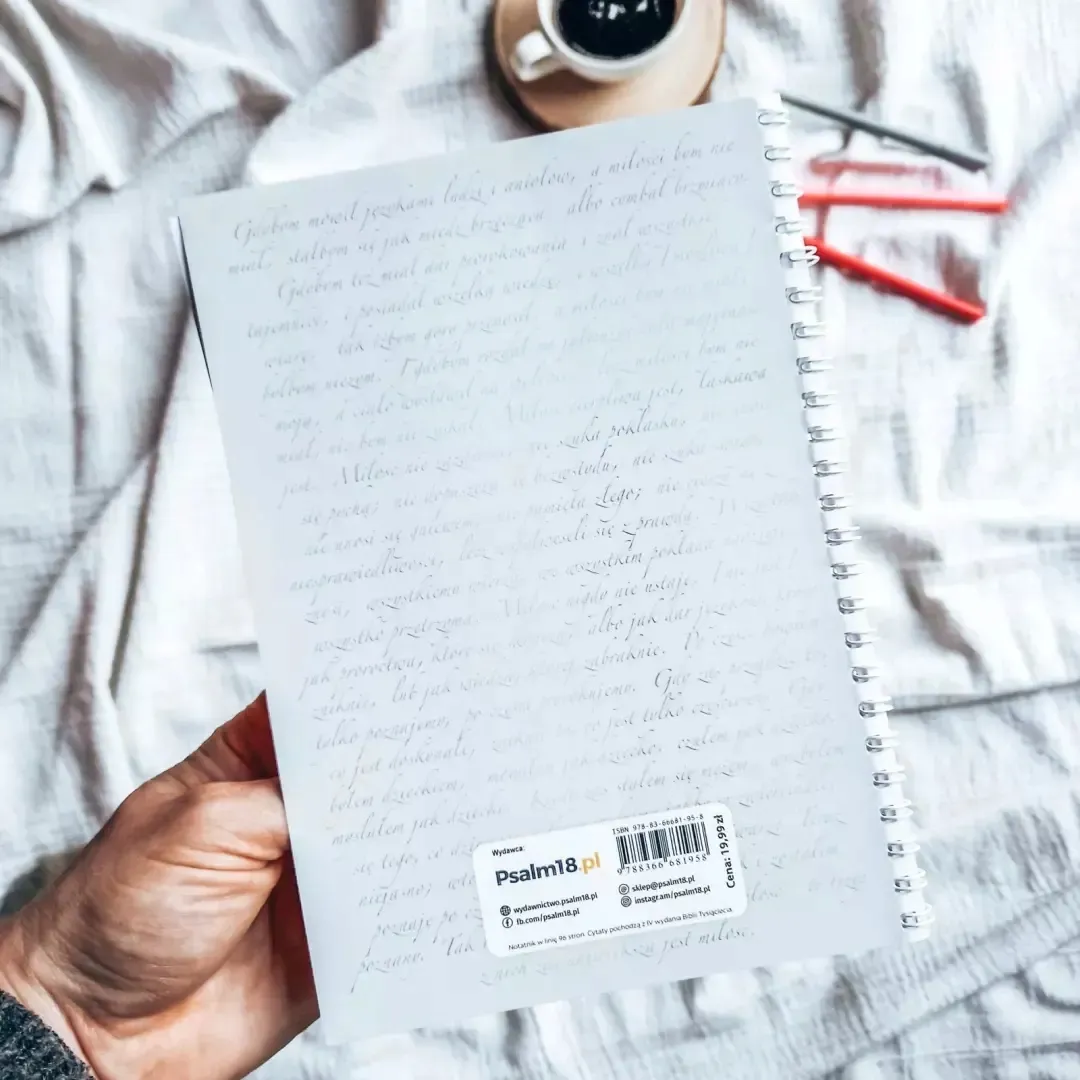 Gdybym mówił językami ludzi i aniołów, a miłości bym nie
miał, stałbym się jak miedź brzęcząca albo cymbał brzmiący.
Gdybym też miał dar prorokowania i znał wszystkie
tajemnice, i posiadał wszelką wiedzę, i wszelką
wiarę, tak iżbym góry przenosił, a miłości bym nie miał
byłbym niczym. I gdybym rozdał na jałmużnę całą majętność
moją, a ciało wystawił na spalenie, lecz miłości bym nie
miał, nic bym nie zyskał. Miłość cierpliwa jest, łaskawa
jest. Miłość nie zazdrości, nie szuka poklasku, nie
się pychą; nie dopuszcza się bezwstydu, nie szuka swego
nie unosi się gniewem, nie pamięta złego; nie cieszy się z
niesprawiedliwości, lecz współweseli się z prawdą. Wszystko
znosi, wszystkiemu wierzy, we wszystkim pokłada nadzieję,
wszystko przetrzyma. Miłość nigdy nie ustaje, nie jest
jak proroctwa, które się skończą, albo jak dar języków, który
zniknie, lub jak wiedza, której zabraknie. Po części bowiem
tylko poznajemy, po części prorokujemy. Gdy zaś przyjdzie to,
co jest doskonałe, zniknie to, co jest tylko częściowe. Gdy
byłem dzieckiem, mówiłem jak dziecko, czułem jak dziecko,
myślałem jak dziecko. Kiedy zaś stałem się mężem, wyzbyłem
się tego, co dziecięce.
niejasno; wtedy
poznaję po części
poznany. Tak trzy
z nich zaś największa jest miłość.
Wydawca:
Psalm18.pl
wydawnictwo.psalm18.pl
fb.com/psalm18.pl
ISBN 978-83-66681-95-8
9 788366 681958
sklep@psalm18.pl
instagram/psalm18.pl
Cena: 19,99 zł
Notatnik w linię 96 stron. Cytaty pochodzą z IV wydania Biblii Tysiąclecia